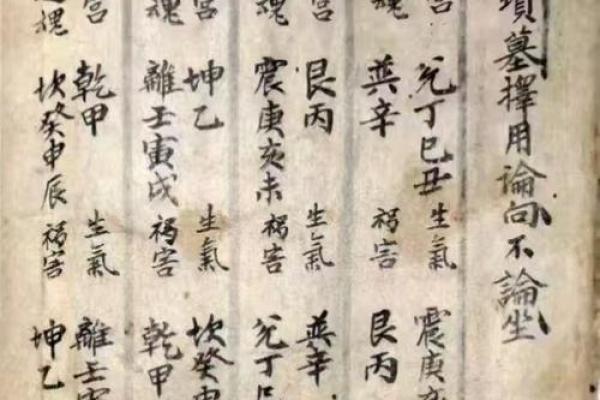 墳墓擇用論向不論坐
宮 兌丁巳丑 生氣 震庚亥
魂 巽辛 禍害 艮丙
宮 艮丙 生氣 巽辛
魂 震庚亥未 禍害 兌丁巳
宮 坤乙 生氣 坎癸申
魂 離壬寅戌 禍害 乾甲
宮 乾甲 生氣 離壬寅
魂 坎癸申辰 禍害 坤乙